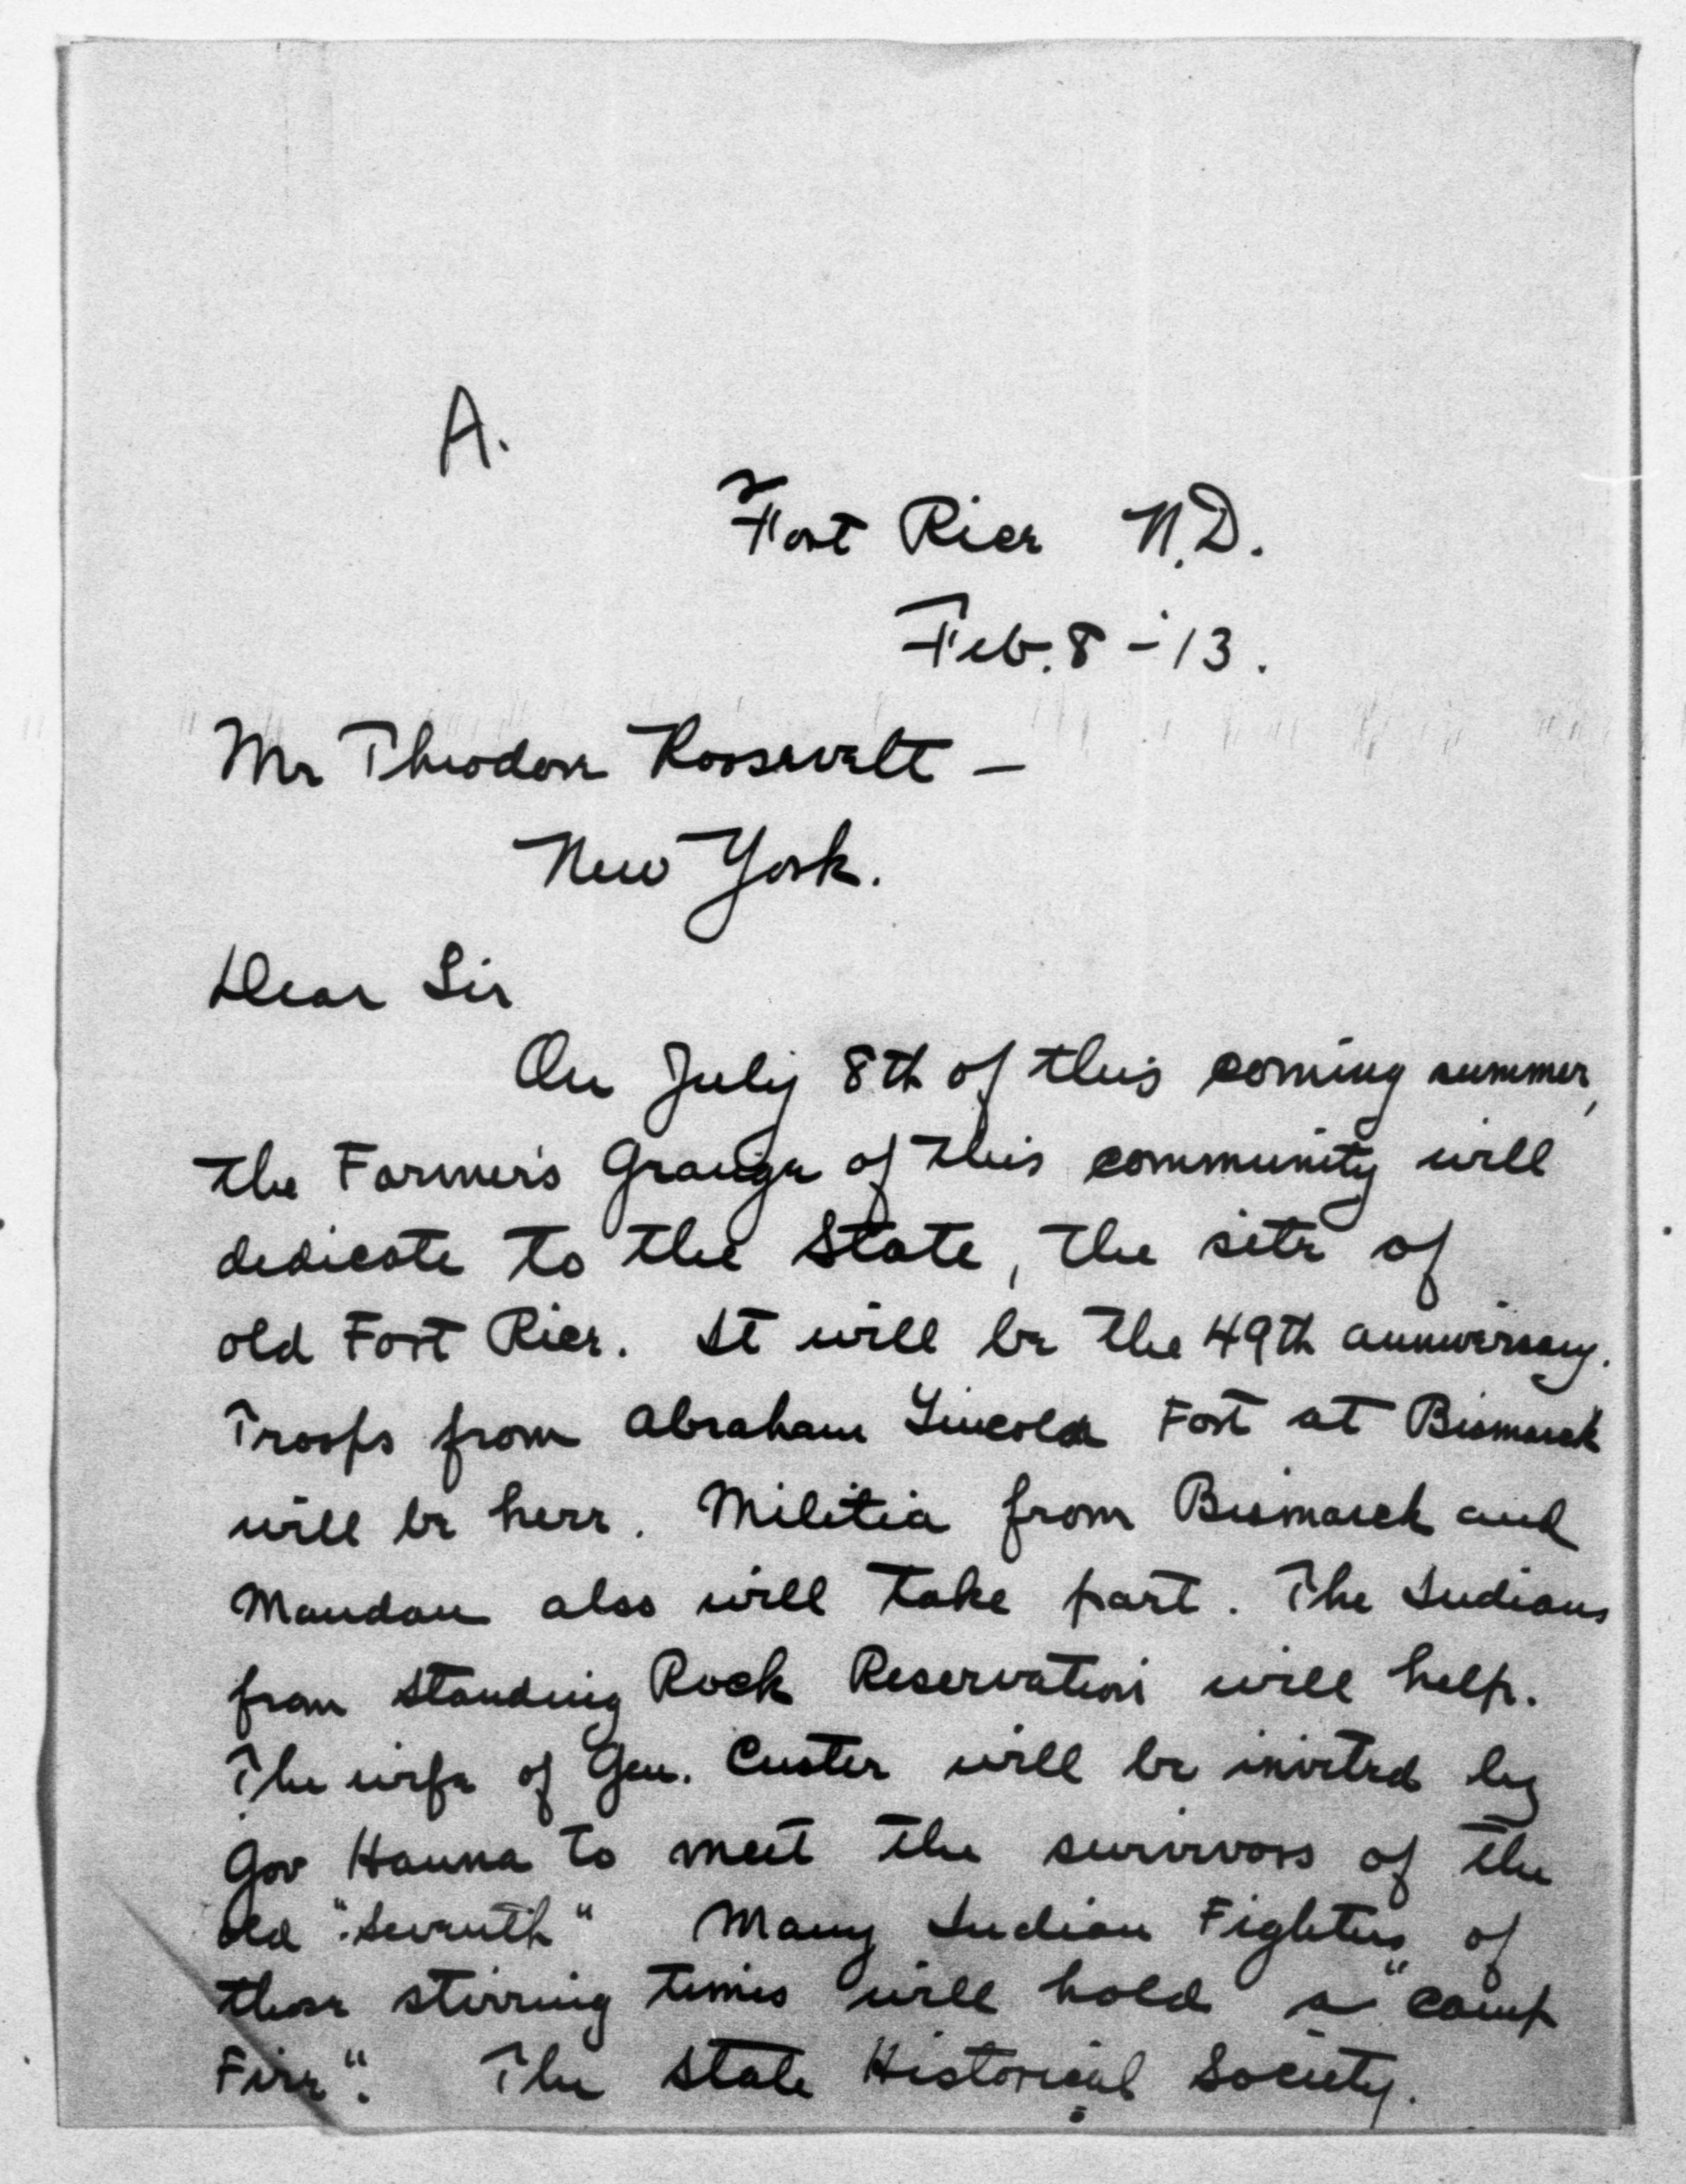 A.
Fort Rice N.D.
Feb. 8 - '13.
Mr Theodore Roosevelt —
New York.
Dear Sir
On July 8th of this coming summer,
the Farmer's Grange of this community will
dedicate to the State, the site of
old Fort Rice. It will be the 49th anniversary.
Troops from Abraham Lincoln Fort at Bismarck
will be here. Militia from Bismarck and
Mandan also will take part. The Indians
from Standing Rock Reservation will help.
The wife of Gen. Custer will be invited by
Gov Hanna to meet the survivors of the
old "Seventh" Many Indian Fighters of
those stirring times will hold a "Camp
Fire". The State Historical Society.